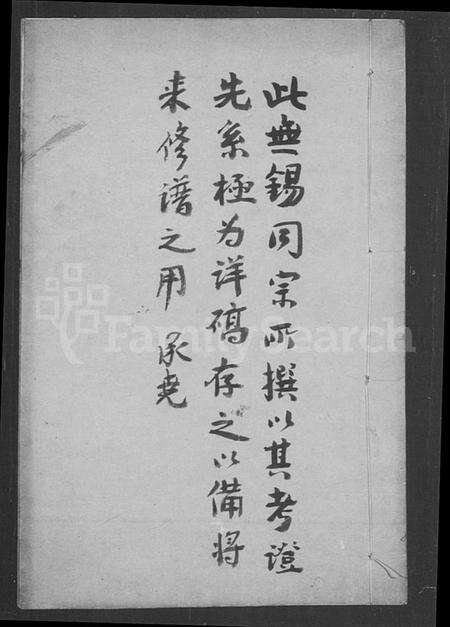 此無錫同宗所撰以其考證
先系極为详碻存之以備将
来修谱之用 承堯
FamilySearch